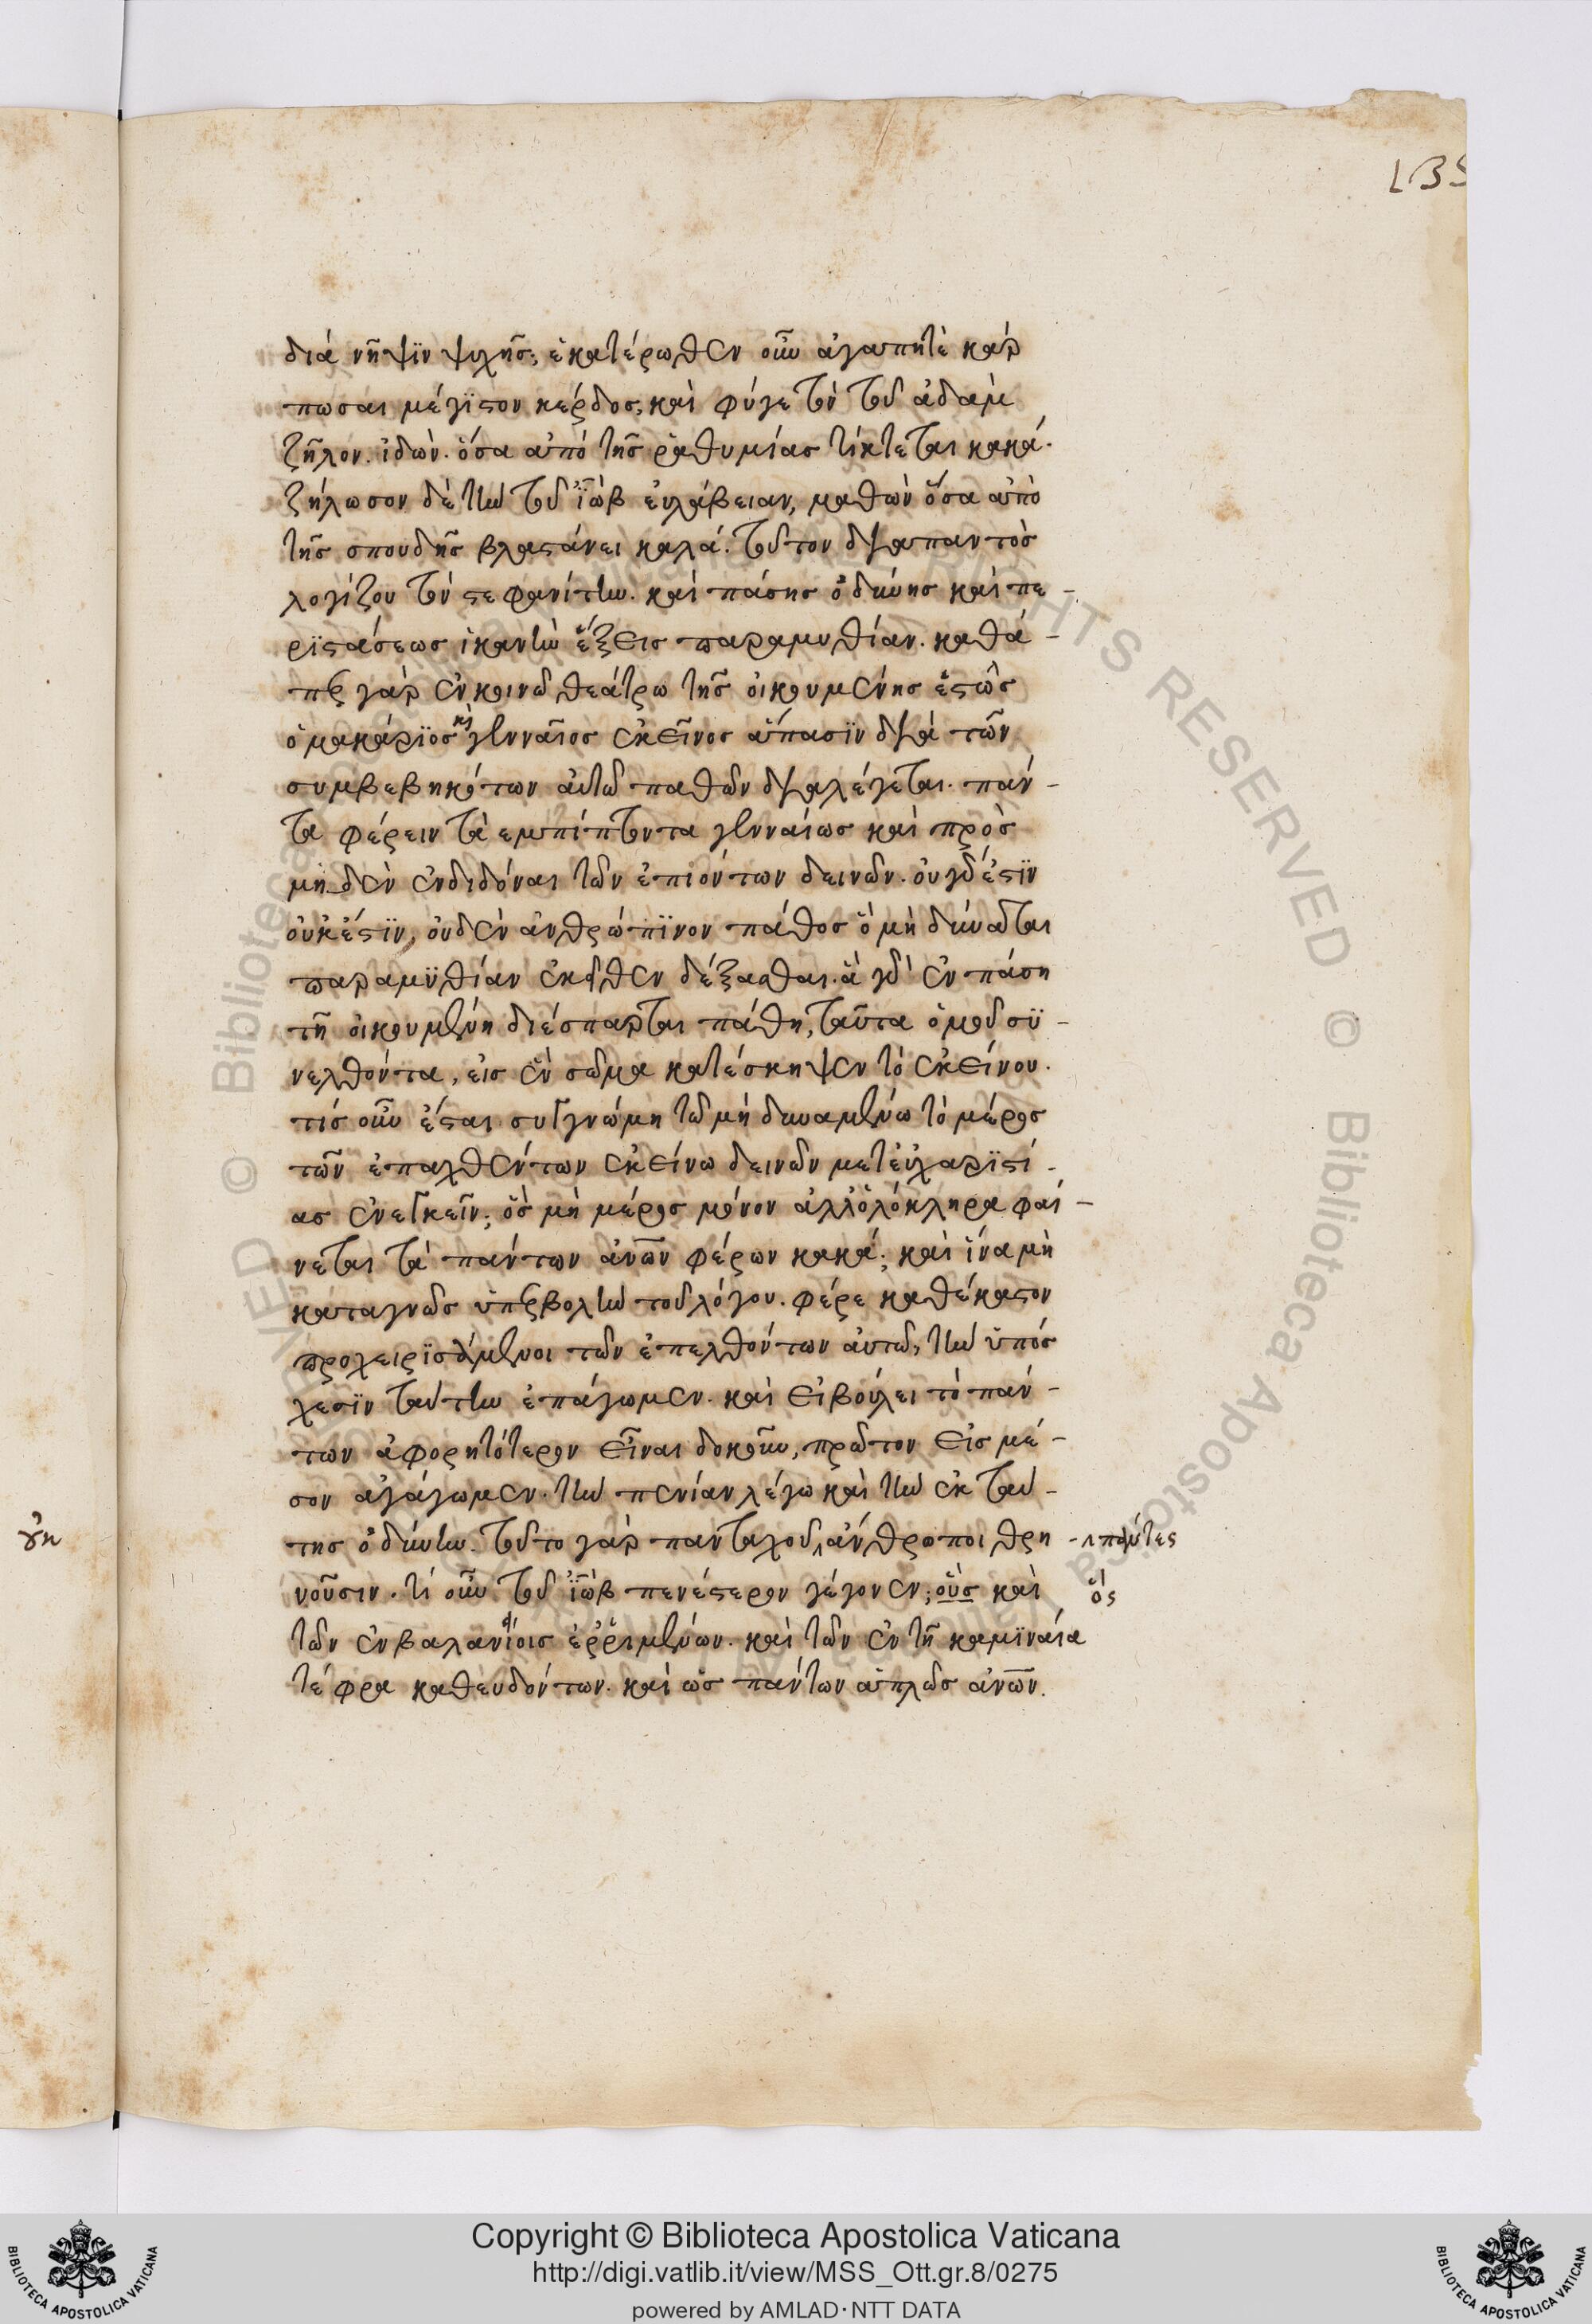 135
διὰ νῆψϊν ψυχῆς; ἑκατέρωθεν οὖν ἀγαπητὲ κάρ
πωσαι μέγϊστον κέρδος, καὶ φύγε τὸν τοῦ ἀδὰμ
ζῆλον. ἰδὼν. ὅσα ἀπὸ τῆς ῥαθυμίας τίκτεται κακά.
ζήλωσον δὲ τὴν τοῦ ἰὼβ εὐλάβειαν, μαθὼν ὅσα ἀπὸ
τῆς σπουδῆς βλαστάνει καλά. τοῦτον διαπαντὸς
λογίζου τὸν στεφανίτην. καὶ πάσης ὀδύνης καὶ πε-
ρϊστάσεως ἱκανὴν ἕξεις παραμυθίαν. καθά-
περ γὰρ ἐν κοινῶ θεάτρω τῆς οἰκουμένης ἑστὼς
ὁ μακάρϊος καὶ γενναῖος ἐκεῖνος ἅπασϊν διὰ τῶν
συμβεβηκότων αὐτῶ παθῶν διαλέγεται. πάν-
τα φέρειν τὰ εμπίπτοντα γενναίως καὶ πρὸς
μηδὲν ἐνδιδόναι τῶν ἐπιόντων δεινῶν. οὐ γὰρ ἔστϊν
οὐκ ἔστϊν, οὐδὲν ἀνθρώπϊνον πάθος ὃ μὴ δύναται
παραμϋθίαν ἐκεῖθεν δέξασθαι. ἃ γὰρ ἐν πάση
τῆ οἰκουμένη διέσπαρται πάθη, ταῦτα ὁμοῦ σϋ-
νελθόντα, εἰς ἓν σῶμα κατέσκηψεν τὸ ἐκείνου.
τίς οὖν ἔσται συγγνώμη τῶ μὴ δυναμένω τὸ μέρος
τῶν ἐπαχθέντων ἐκείνω δεινῶν μετ' εὐχαρϊστί-
ας ἐνεγκεῖν; ὃς μὴ μέρος μόνον ἀλλ' ὁλόκληρα φαί-
νεται τὰ πάντων ἀνων φέρων κακά; καὶ ἵνα μὴ
καταγνῶς ὑπερβολὴν τοῦ λόγου. φέρε καθέκαστον
προχειρϊσάμενοι τῶν ἐπελθόντων αὐτῶ, τὴν ὑπός
χεσϊν ταύτην ἐπάγωμεν. καὶ εἰ βούλει τὸ πάν-
των ἀφορητότερον εἶναι δοκοῦν, πρῶτον εἰς μέ-
σον ἀγάγωμεν. τὴν πενίαν λέγω καὶ τὴν ἐκ ταύ-
της ὀδύνην. τοῦτο γὰρ πανταχοῦ ἄνθρωποι θρη-
πάντες
νοῦσιν. τί οὖν τοῦ ἰὼβ πενέστερον γέγονεν; οὓς καὶ
ὃς
τῶν ἐν βαλανείοις ἐρριμένων. καὶ τῶν ἐν τῆ καμϊναία
τέφρα καθευδόντων. καὶ ὡς πάντων ἁπλῶς ἀνων.
Copyright © Biblioteca Apostolica Vaticana
http://digi.vatlib.it/view/MSS_Ott.gr.8/0275
powered by AMLAD·NTT DATA
BIBLIOTECA APOSTOLICA VATICANA
BIBLIOTECA APOSTOLICA VATICANA